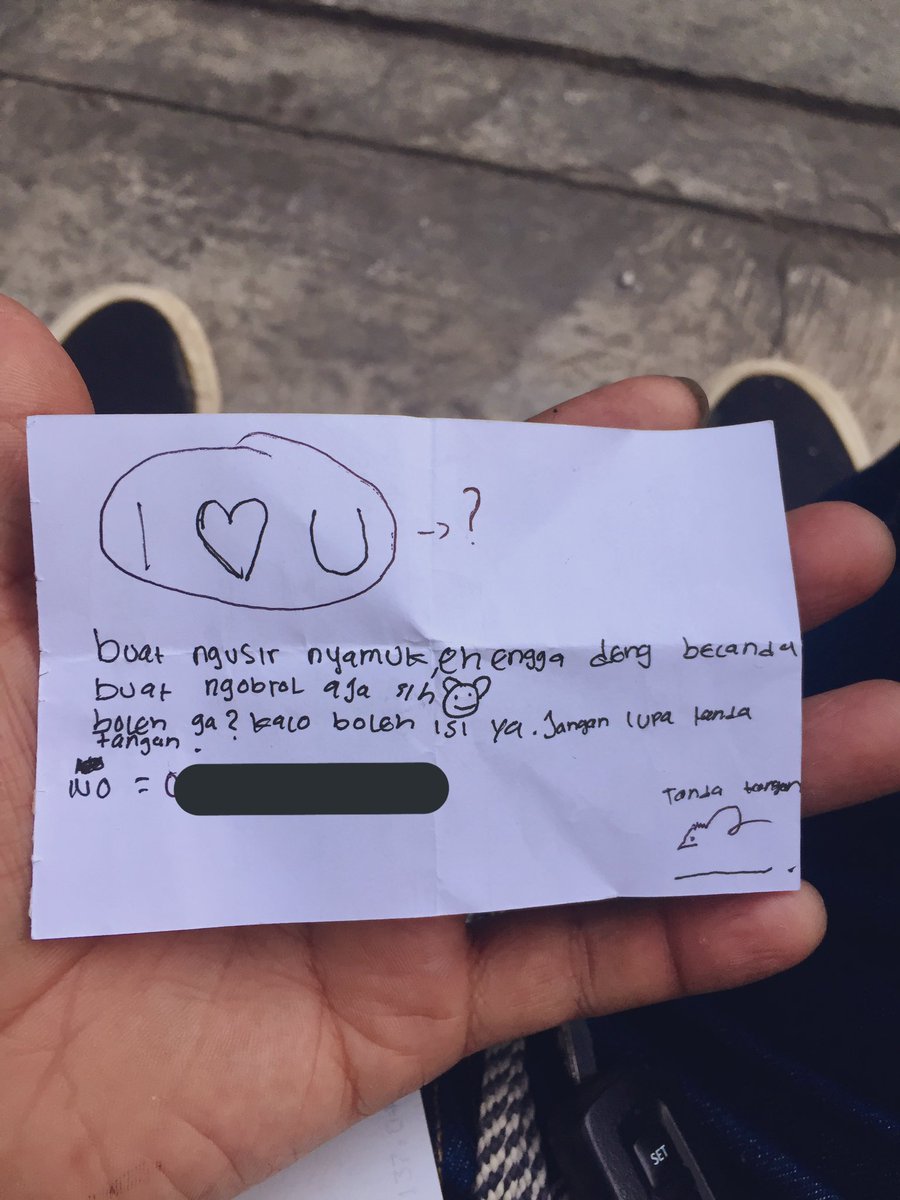 I ♡ U → ?
buat ngusir nyamuk, eh engga deng becanda
buat ngobrol aja sih
boleh ga? kalo boleh isi ya. Jangan lupa tanda
tangan.
NO = 0
Tanda tangan
SET